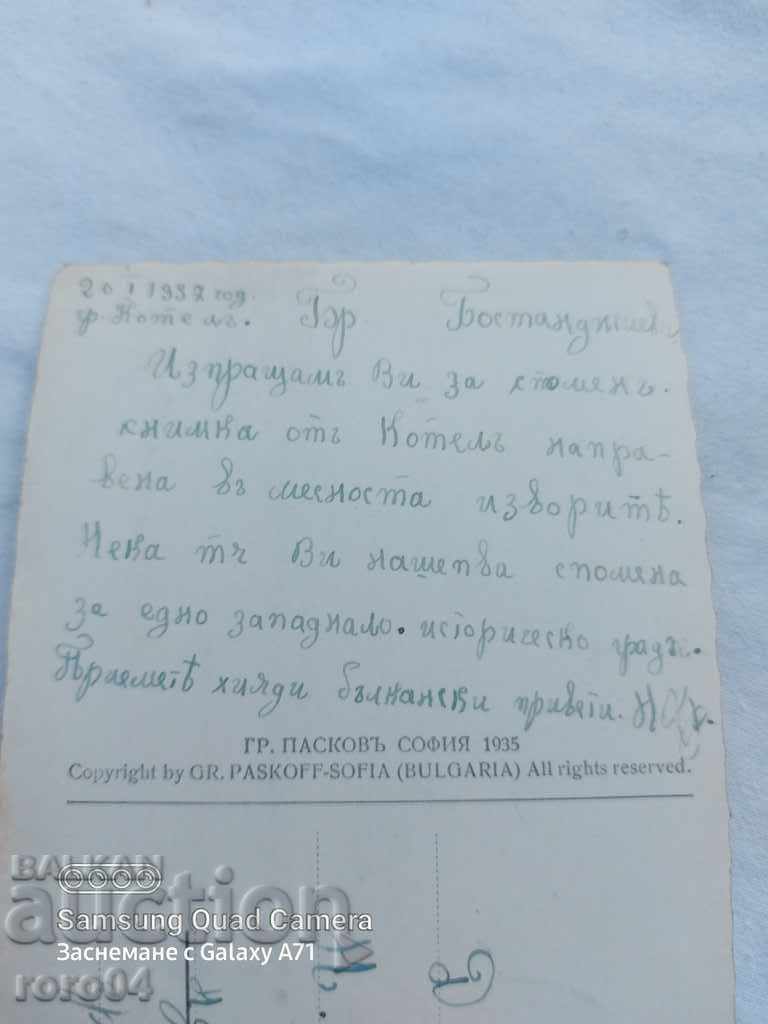 20 I 1937 год.
гр. Котелъ. Бр Бостанджиев
Изпращамъ Ви за споменъ.
снимка отъ Котелъ напра-
вена въ месноста изворитѣ.
Нека тя Ви нашепва спомена
за едно западнало. историческо градъ.
Приеметѣ хиляди бълкански привети.
ГР. ПАСКОВЪ СОФИЯ 1935
Copyright by GR. PASKOFF-SOFIA (BULGARIA) All rights reserved.
BALKAN
auction
Samsung Quad Camera
Заснемане с Galaxy A71
roro04